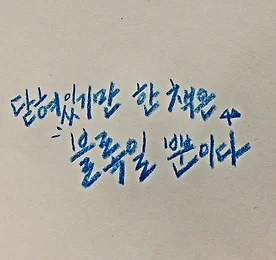 닫혀있기만 한 책은
블록일 뿐이다